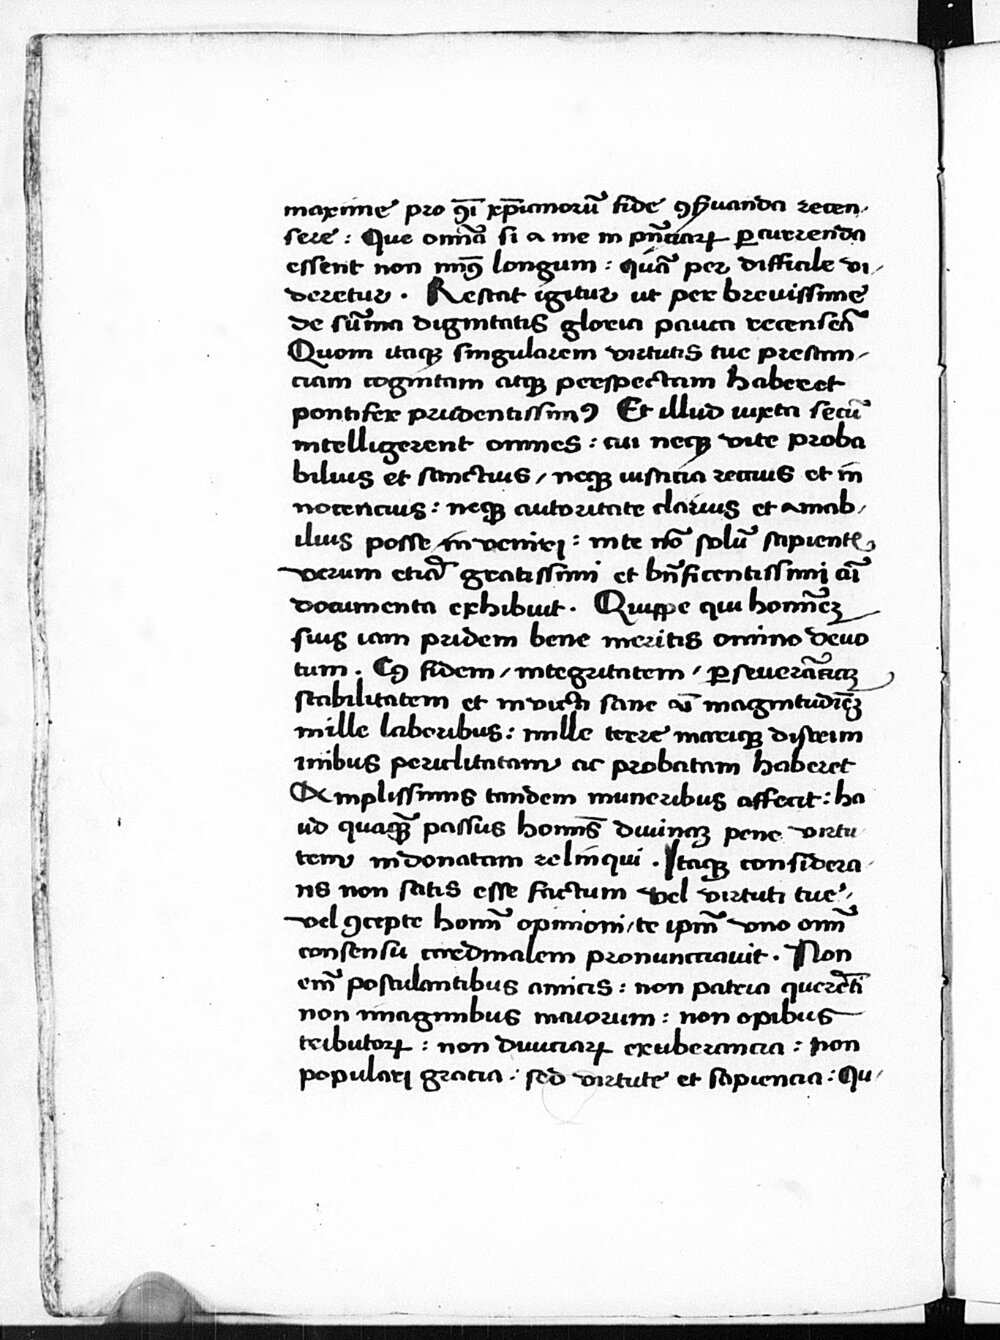 maxime pro ꝯi xp̄ianorū fide ꝯſ̄uanda recen,
sere : Que om̄ia si a me in pn̄ciaꝝ ꝑcurrenda
essent non min9 longum : quā per difficile vi,
deretur . Restat igitur ut per brevissime
de sūma dignitatis gloria pauca recenseā
Quom itaqꝫ singularem virtutis tue prestan,
ciam cognitam atqꝫ perspectam haberet
pontifex prudentissim9 Et illud iuxta secū
intelligerent omnes : cui neqꝫ vite proba
bilius et sanctius / neqꝫ iusticia rectius et in
nocencius : neqꝫ autoritate clarius et amab,
ilius posse inveniri : in te nō solū sapientis
verum etiā gratissimi et bn̄ficentissimi aī
documenta exhibuit . Quippe qui hominēz
suis iam pridem bene meritis omnino devo
tum . C9 fidem / integritatem / ꝑseverātiaꝫ
stabilitatem et invicti sane aī magnitudinēꝫ
mille laboribus : mille terre mariqꝫ discrim
inibus periclitatam ac probatam haberet
Amplissimis tandem muneribus affecit : ha
ud quaqꝫ passus hominis divinaꝫ pene virtu
tem indonatam relinqui . Itaqꝫ considera,
ns non satis esse factum vel virtuti tue,
vel ꝯcepte homin̄ opinioni / te ipm̄ uno omī
consensu cardinalem pronunciavit . Non
em̄ postulantibus amicis : non patria querēti
non imaginibus maiorum : non opibus
tributoꝝ : non diviciaꝝ exuberancia : non
populari gracia : sed virtute et sapiencia : Qu,